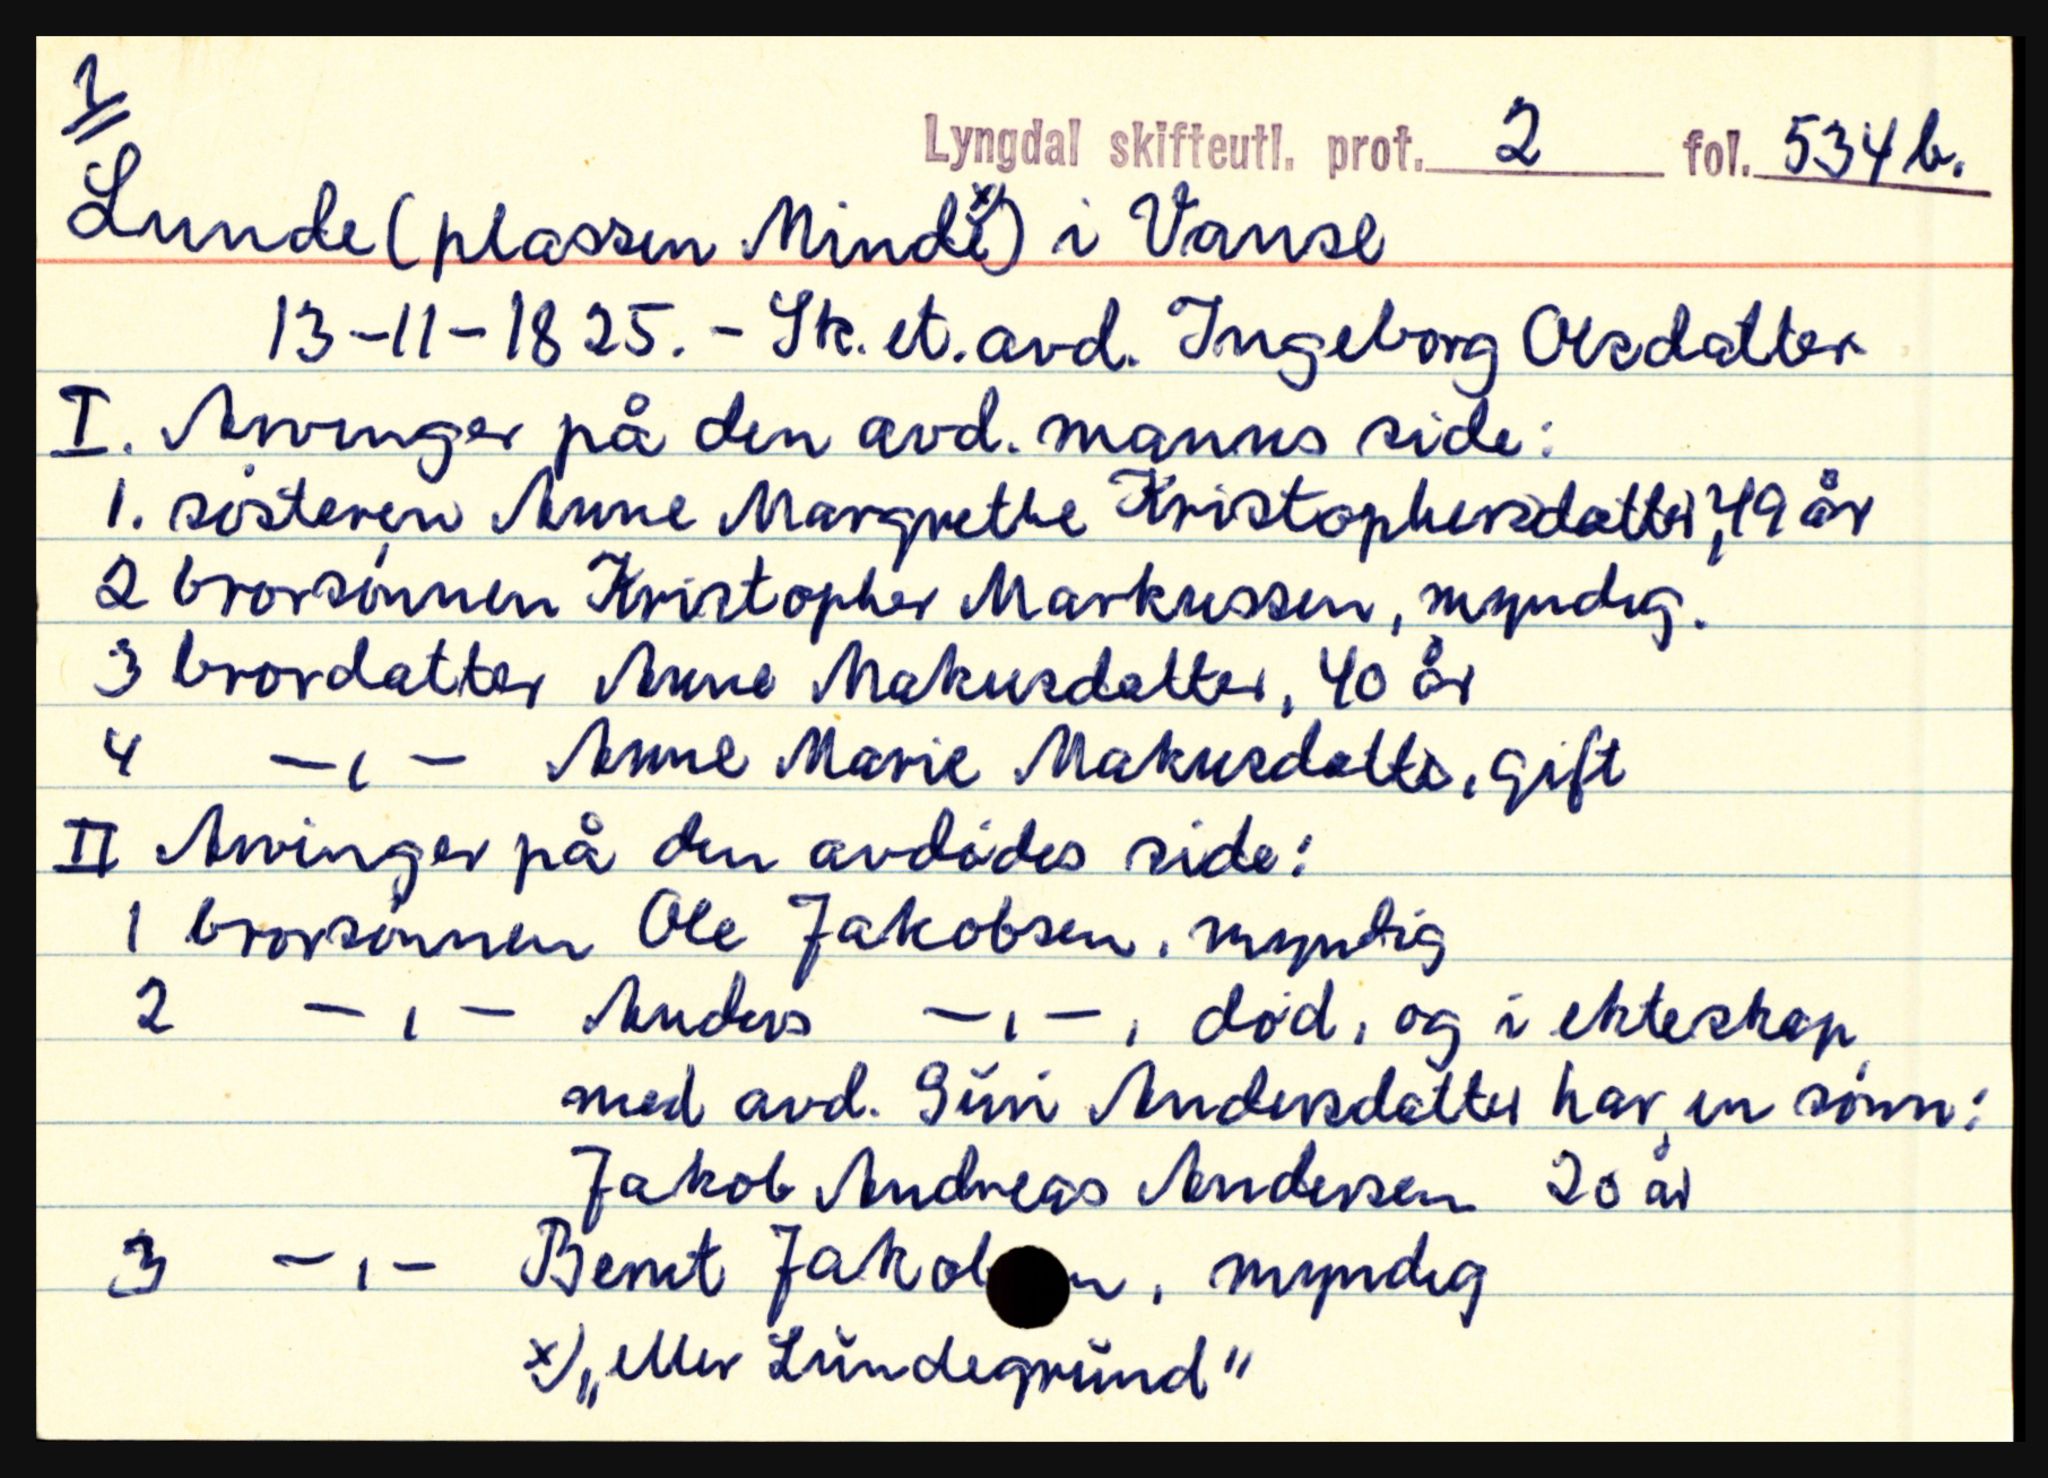 1
Lyngdal skifteutl. prot. 2 fol. 534 b.
Lunde (plassen Minde x)) i Vanse
13-11-1825. - Sk. et. avd. Ingeborg Olsdatter
I. Arvinger på den avd. manns side:
1. søsteren Anne Margrethe Kristophersdatter, 49 år
2 brorsønnen Kristopher Markussen, myndig.
3 brordatter Anne Makusdatter, 40 år
4 -,- Anne Marie Makusdatter, gift
II Arvinger på den avdødes side:
1 brorsønnen Ole Jakobsen, myndig
2 -,- Anders -,-, død, og i ekteskap
med avd. Guri Andersdatter har en sønn:
Jakob Andreas Andersen 20 år
3 -,- Bernt , myndig
x) „eller Lundegrund"